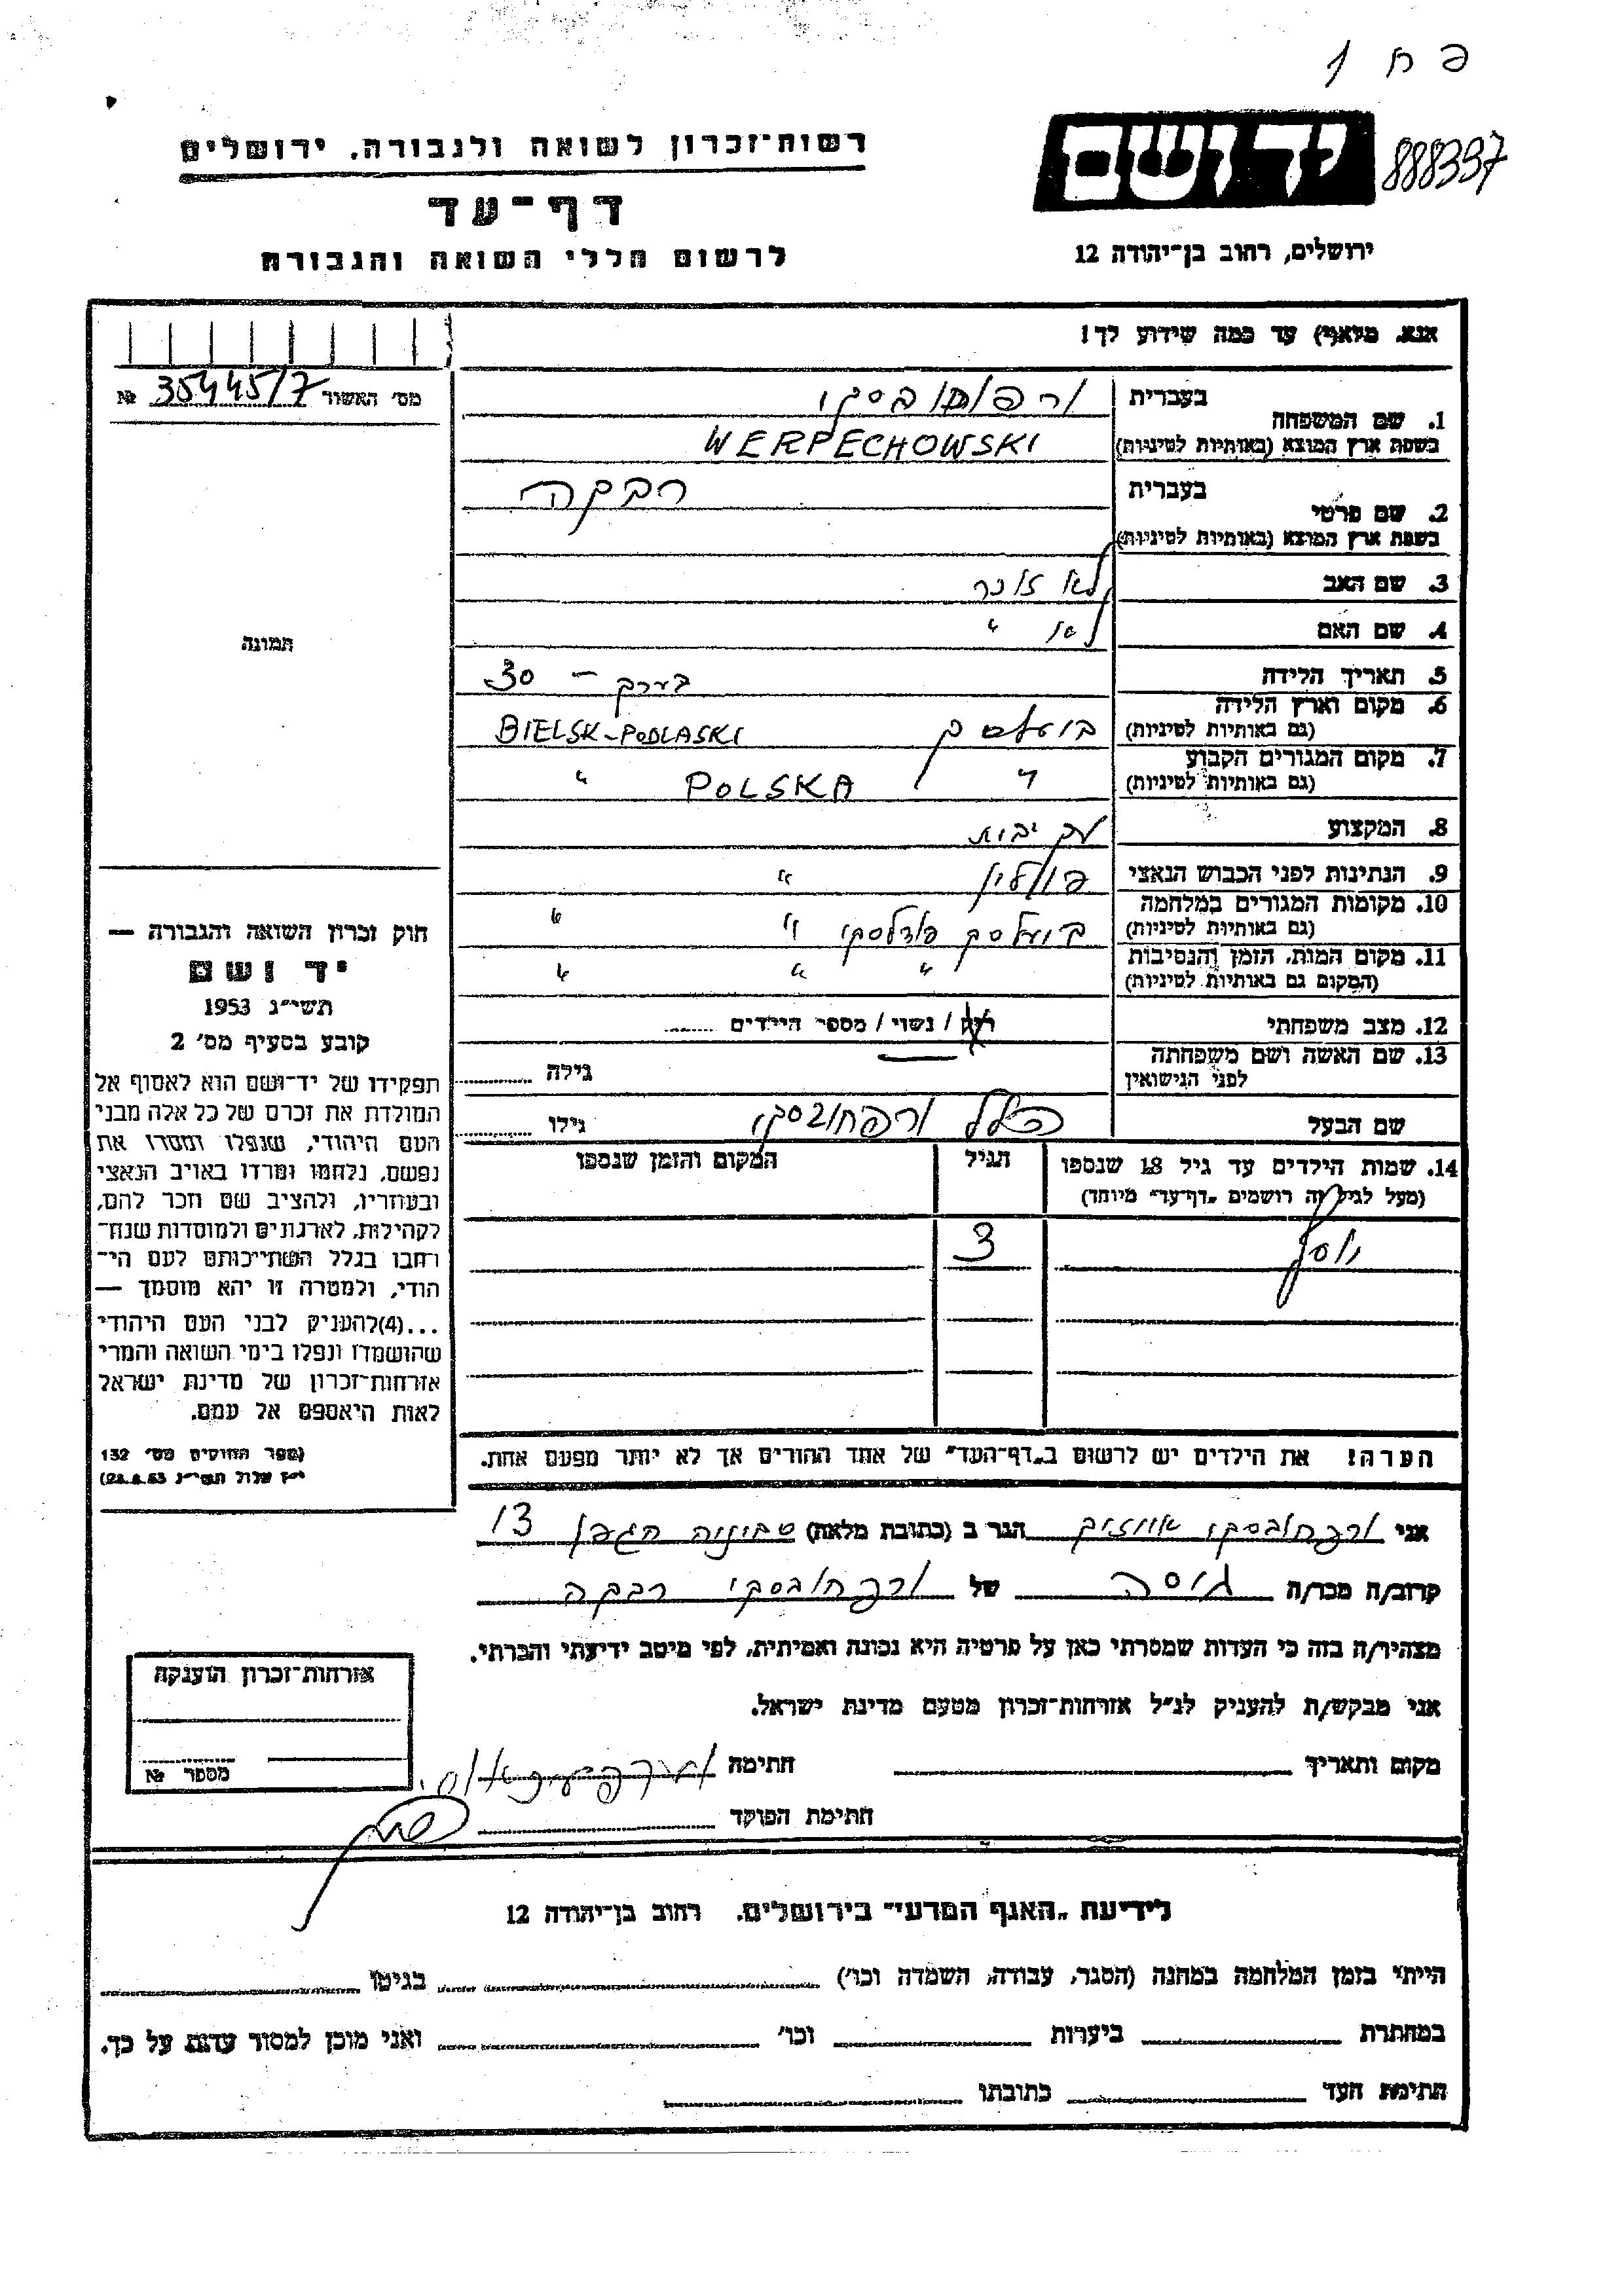 פ ח 1
יד ושם
888397
ירושלים, רחוב בן־יהודה 12
רשות־זכרון לשואה ולגבורה. ירושלים
דף־עד
לרשום חללי השואה והגבורה
אנא. מלא(י) עד כמה שידוע לך!
מס' האשור 35445/7 №
1. שם המשפחה
בעברית ורפוחובסקי
בשפת ארץ המוצא (באותיות לטיניות) WERPECHOWSKI
2. שם פרטי
בעברית רבקה
בשפת ארץ המוצא (באותיות לטיניות)
3. שם האב לא זוכר
4. שם האם לא "
5. תאריך הלידה בערך – 30
6. מקום וארץ הלידה
(גם באותיות לטיניות) BIELSK-PODLASKI
7. מקום המגורים הקבוע
(גם באותיות לטיניות) " POLSKA "
8. המקצוע עק יבות
9. הנתינות לפני הכבוש הנאצי פולין "
10. מקומות המגורים במלחמה
(גם באותיות לטיניות) ביעלסק פודלסקי " "
11. מקום המות, הזמן והנסיבות
(המקום גם באותיות לטיניות) " " "
12. מצב משפחתי רוק / נשוי / מספר הילדים
13. שם האשה ושם משפחתה
לפני הנישואין גילה
שם הבעל הלל ורפחובסקי גילו
14. שמות הילדים עד גיל 18 שנספו
(מעל לגיל זה רושמים "דף־עד" מיוחד)
הגיל
המקום והזמן שנספו
יוסף 3
הערה! את הילדים יש לרשום ב"דף־העד" של אחד ההורים אך לא יותר מפעם אחת.
תמונה
חוק זכרון השואה והגבורה —
יד ושם
תשי״ג 1953
קובע בסעיף מס' 2
תפקידו של יד־ושם הוא לאסוף אל
המולדת את זכרם של כל אלה מבני
העם היהודי, שנפלו ומסרו את
נפשם, נלחמו ומרדו באויב הנאצי
ובעוזריו, ולהציב שם וזכר להם,
לקהילות, לארגונים ולמוסדות שנח־
רחבו בגלל השתייכותם לעם הי־
הודי, ולמטרה זו יהא מוסמך —
...(4)להעניק לבני העם היהודי
שהושמדו ונפלו בימי השואה והמרי
אזרחות־זכרון של מדינת ישראל
לאות היאספם אל עמם.
(ספר החוקים מס' 132
י״ז אלול תשי״ג 28.8.53)
אני ורפחובסקי הגר ב (כתובת מלאה) הגפן 13
קרוב/ה מכר/ה גיסה של ורפחובסקי רבקה
מצהיר/ה בזה כי העדות שמסרתי כאן על פרטיה היא נכונה ואמיתית, לפי מיטב ידיעתי והכרתי.
אני מבקש/ת להעניק לנ״ל אזרחות־זכרון מטעם מדינת ישראל.
מקום ותאריך חתימה
חתימת הפוקד
אזרחות־זכרון הוענקה
מספר №
לידיעת "האגף המדעי" בירושלים. רחוב בן־יהודה 12
הייתי בזמן המלחמה במחנה (הסגר, עבודה, השמדה וכו') בגיטו
במחתרת ביערות וכו' ואני מוכן למסור עדות על כך.
חתימת העד כתובתו